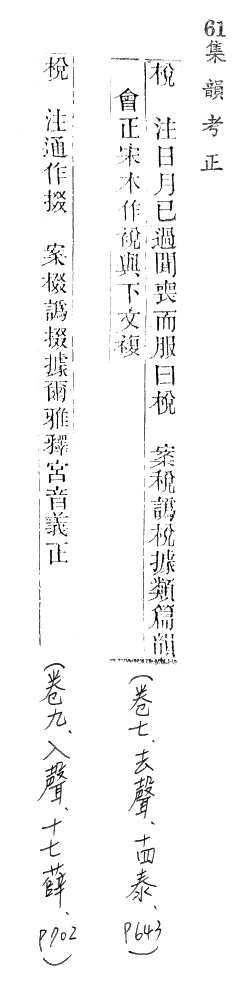 61集韻考正
梲 注日月已過聞喪而服曰梲 案稅譌梲據類篇韻
會正宋本作祱與下文複
(卷七、去聲、十四泰、P643)
梲 注通作掇 案棳譌掇據爾雅釋宮音義正
(卷九、入聲、十七薛、P702)